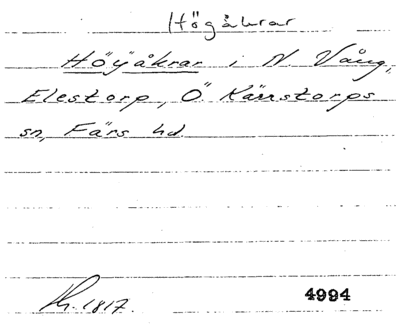 Högåkrar
Höÿåkrar i N. Vång,
Elestorp, Ö Kärrstorps
sn, Färs hd
1817.
4994